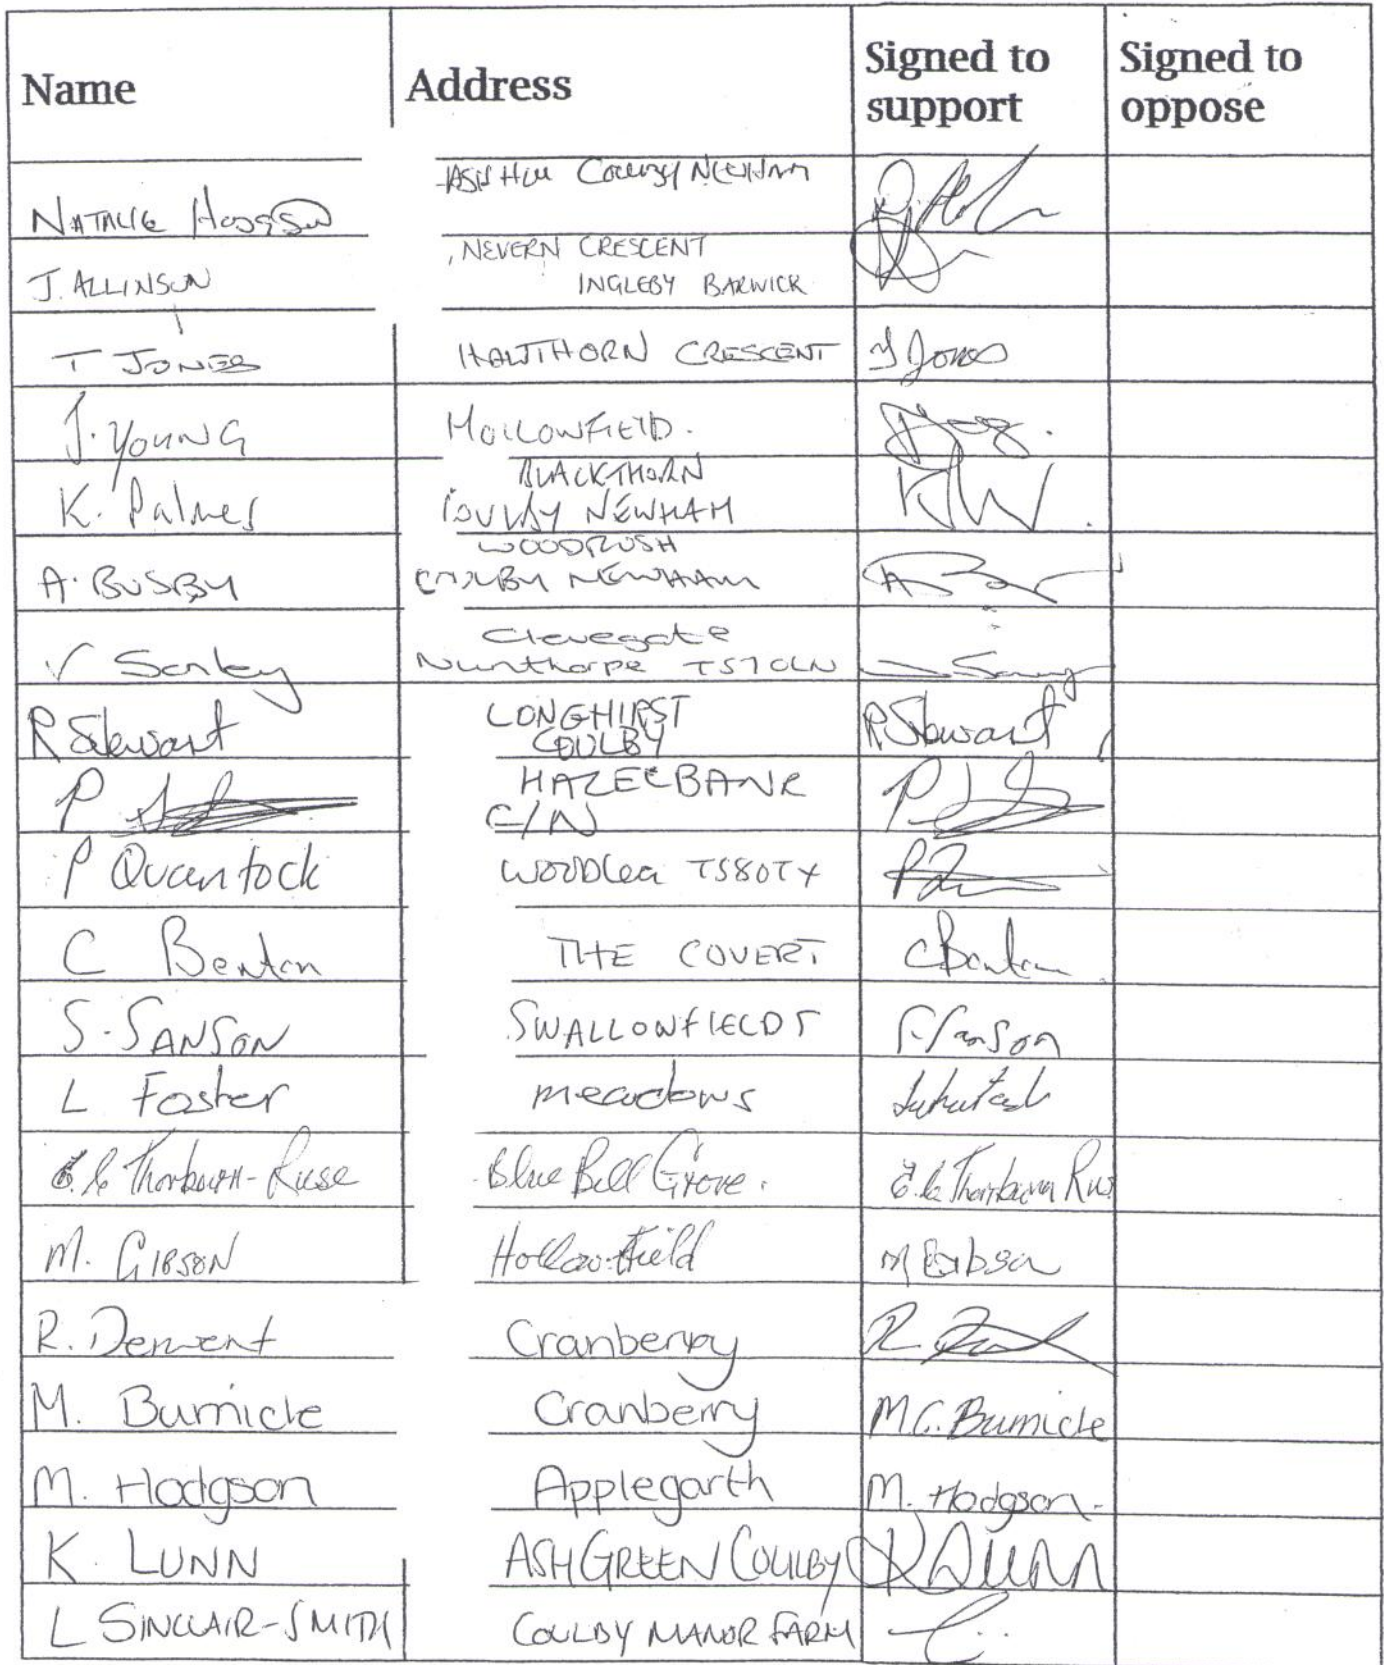 Name Address Signed to support Signed to oppose
NATALIE Hodgson ASH Hill Coulby Newham
J. ALLINSON , NEVERN CRESCENT
INGLEBY BARWICK
T JONES HAWTHORN CRESCENT T Jones
J. YOUNG HOLLOWFIELD.
K. Palmer BLACKTHORN
COULBY NEWHAM
A. BUSBY WOODRUSH
COULBY NEWHAM
V Sankey Clevegate
Nunthorpe TS7 OLN
R Stewart LONGHIRST
COULBY R Stewart
P HAZELBANK
C/N P
P Quantock WOODLea TS80TX
C Benton THE COVERT C Benton
S. SANSON SWALLOWFIELDS S. Sanson
L Foster meadows
Thorburn-Ruse Blue Bell Grove. Thorburn Rus
M. GIBSON Hollowfield M Gibson
R. Derwent Cranberry R.
M. Burnicle Cranberry M.C. Burnicle
M. Hodgson Applegarth M. Hodgson.
K. LUNN ASH GREEN COULBY K Lunn
L SINCLAIR-SMITH COULBY MANOR FARM